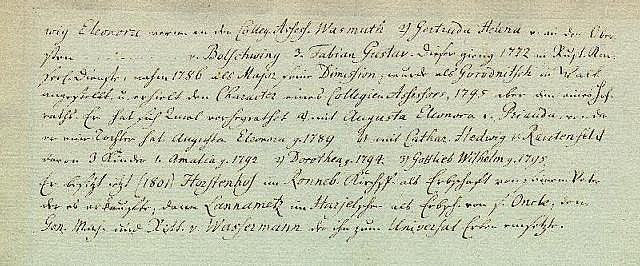 wig Eleonora verm. an den Colleg. Assess. Warmuth 2) Gertruda Helena v. an den Obr
sten v. Bolschwing 3. Fabian Gustav. Dieser gieng 1772 in Russ. Kay
serl. Dienste, nahm 1786 als Major seine Dimission, wurde als Gorodnitsch in Walk
angestellt, u. erhielt den Character eines Collegien Assessors, 1795 aber den eines Hof
raths. Er hat sich 2mal verheyrathet 1) mit Augusta Eleonora v.
er eine Tochter hat Augusta Eleonora g. 1789 2) mit Cathar. Hedwig v. Rautenfeld
davon 3 Kinder 1. Amalia g. 1792 2) Dorothea g. 1794. 3) Gottlieb Wilhelm g. 1795
Er besitzt itzt (1801) Horstenhof im Ronneb. Kirchsp. als Erbschaft von seinem Vater
der es erkaufte, dann Lannametz im Harjelschen als Erbsch. von s. Oncle, dem
Gen. Maj. und Ritt. v. Wassermann der ihn zum Universal Erben einsetzte.